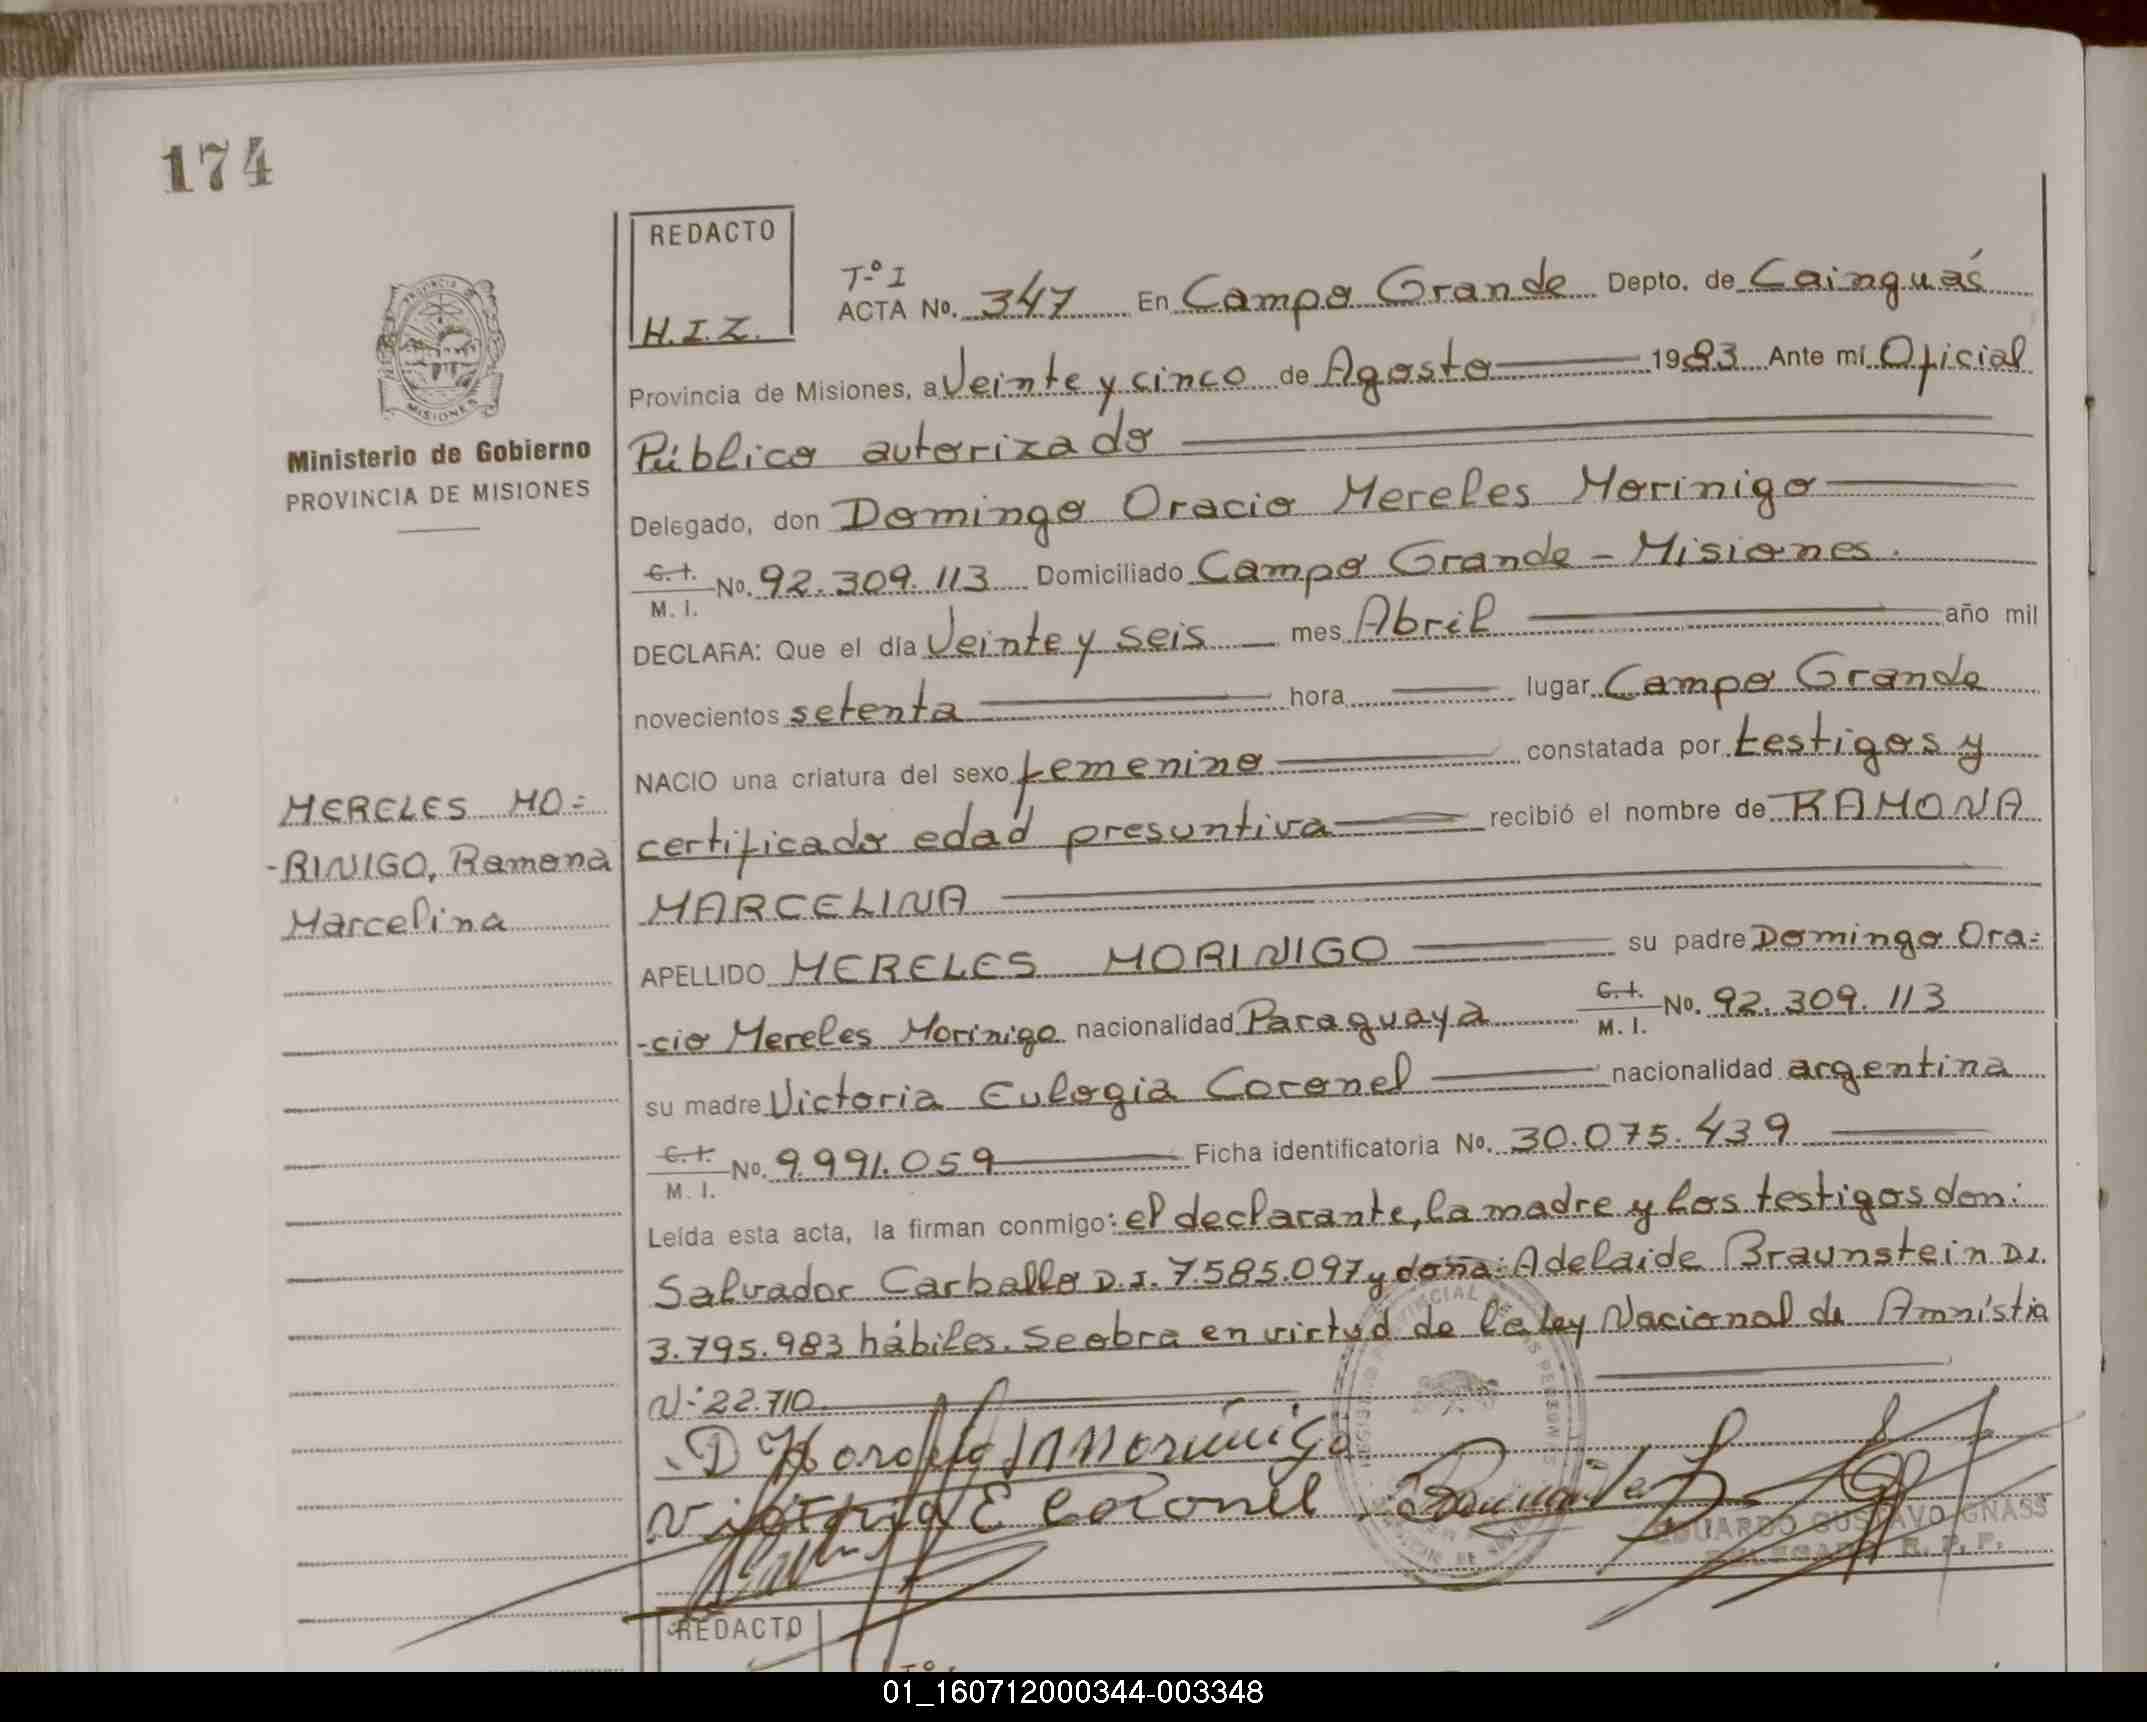 174
REDACTO
H.I.Z.
T.º I
ACTA No. 347 En Campo Grande Depto. de Cainguás
Provincia de Misiones, a Veinte y cinco de Agosto 1983 Ante mí Oficial
Público autorizado
Delegado, don Domingo Oracio Mereles Morinigo
C. I.
M. I. No. 92.309.113 Domiciliado Campo Grande - Misiones.
DECLARA: Que el día Veinte y seis mes Abril año mil
novecientos setenta hora lugar Campo Grande
NACIO una criatura del sexo femenino constatada por testigos y
certificado edad presuntiva recibió el nombre de RAMONA
MARCELINA
APELLIDO MERELES MORINIGO su padre Domingo Ora=
-cio Mereles Morinigo nacionalidad Paraguaya C. I. M. I. No. 92.309.113
su madre Victoria Eulogia Coronel nacionalidad argentina
C. I.
M. I. No. 9.991.059 Ficha identificatoria No. 30.075.439
Leída esta acta, la firman conmigo: el declarante, la madre y los testigos don:
Salvador Carballo D.I. 7.585.097 y doña: Adelaide Braunstein D.I.
3.795.983 hábiles. Se obra en virtud de la ley Nacional de Amnistia
N: 22.710.
PROVINCIA DE
MISIONES
Ministerio de Gobierno
PROVINCIA DE MISIONES
MERELES MO=
-RINIGO, Ramona
Marcelina
Morinigo
E Coronel
EDUARDO GUSTAVO GNASS
DELEGADO R. P. P.
REDACTO
01_160712000344-003348